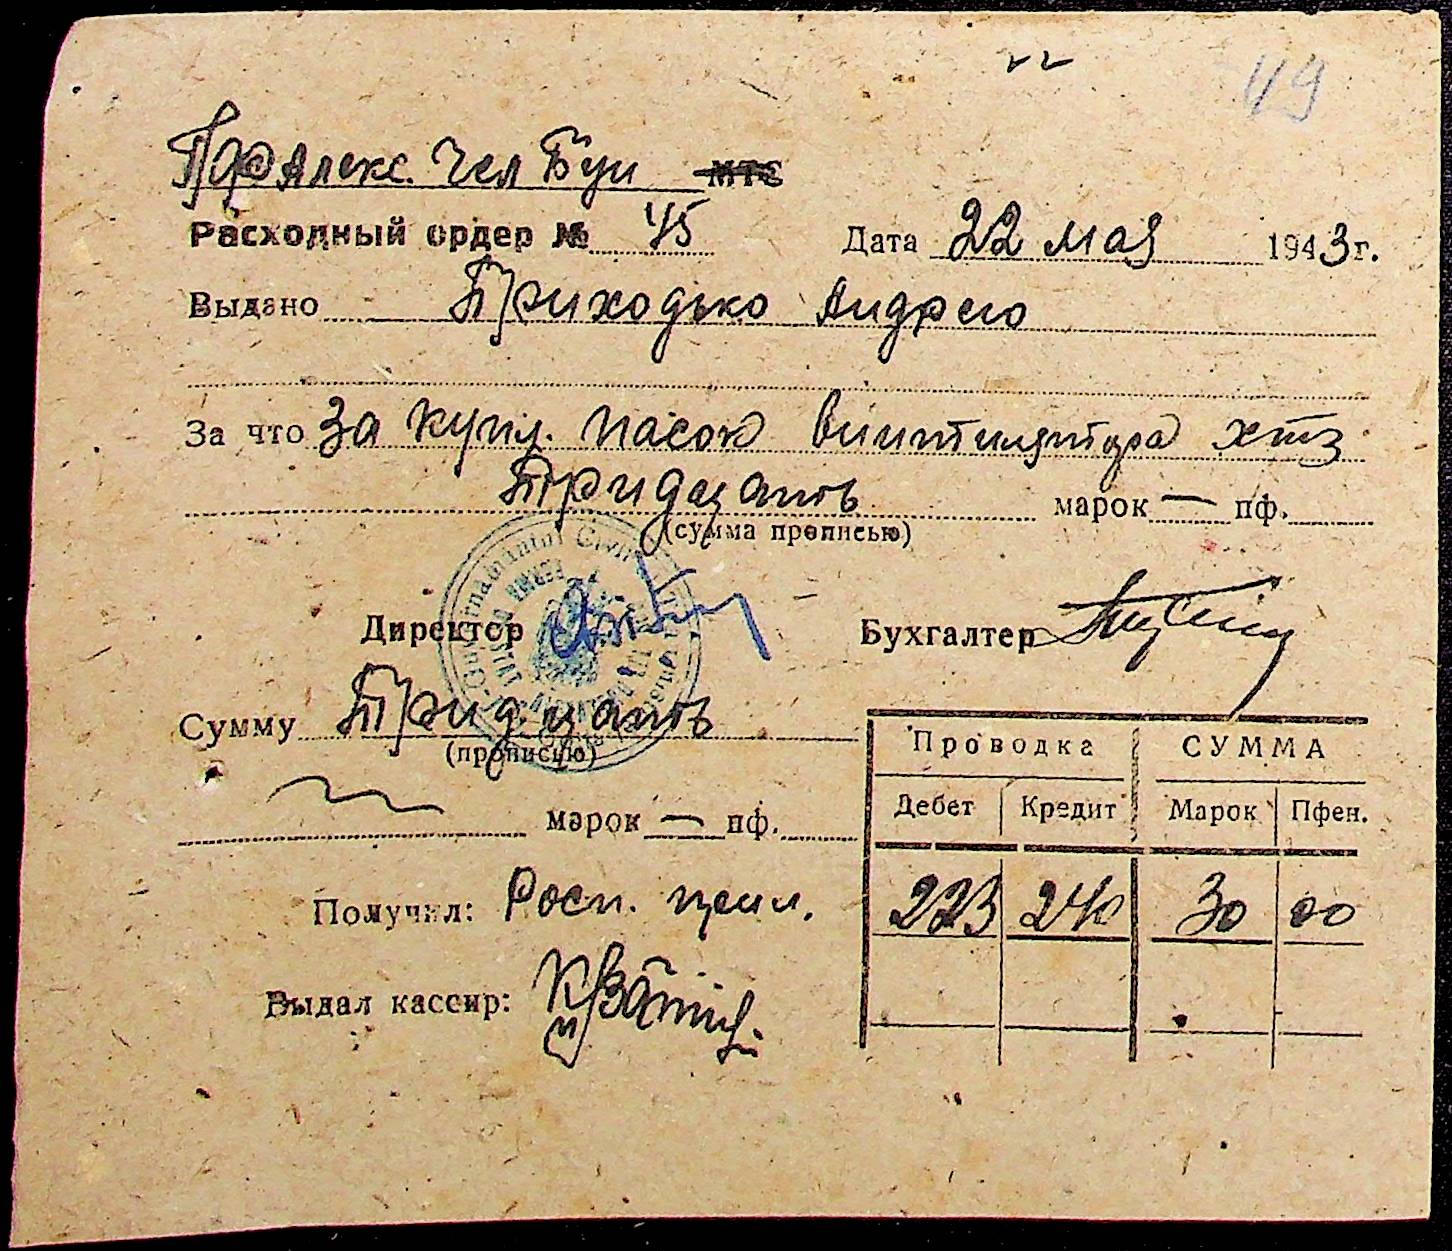 49
Алекс. Чел Буи МТС
Расходный ордер № 45 Дата 22 мая 1943 г.
Выдано Приходько Андрею
За что За купл. пасок винтилятора хтз
Тридцать марок — пф.
(сумма прописью)
Директор Бухгалтер
Сумму Тридцать
(прописью)
марок — пф.
Проводка СУММА
Дебет Кредит Марок Пфен.
223 240 30 00
Получил: Росп. цеил.
Выдал кассир: